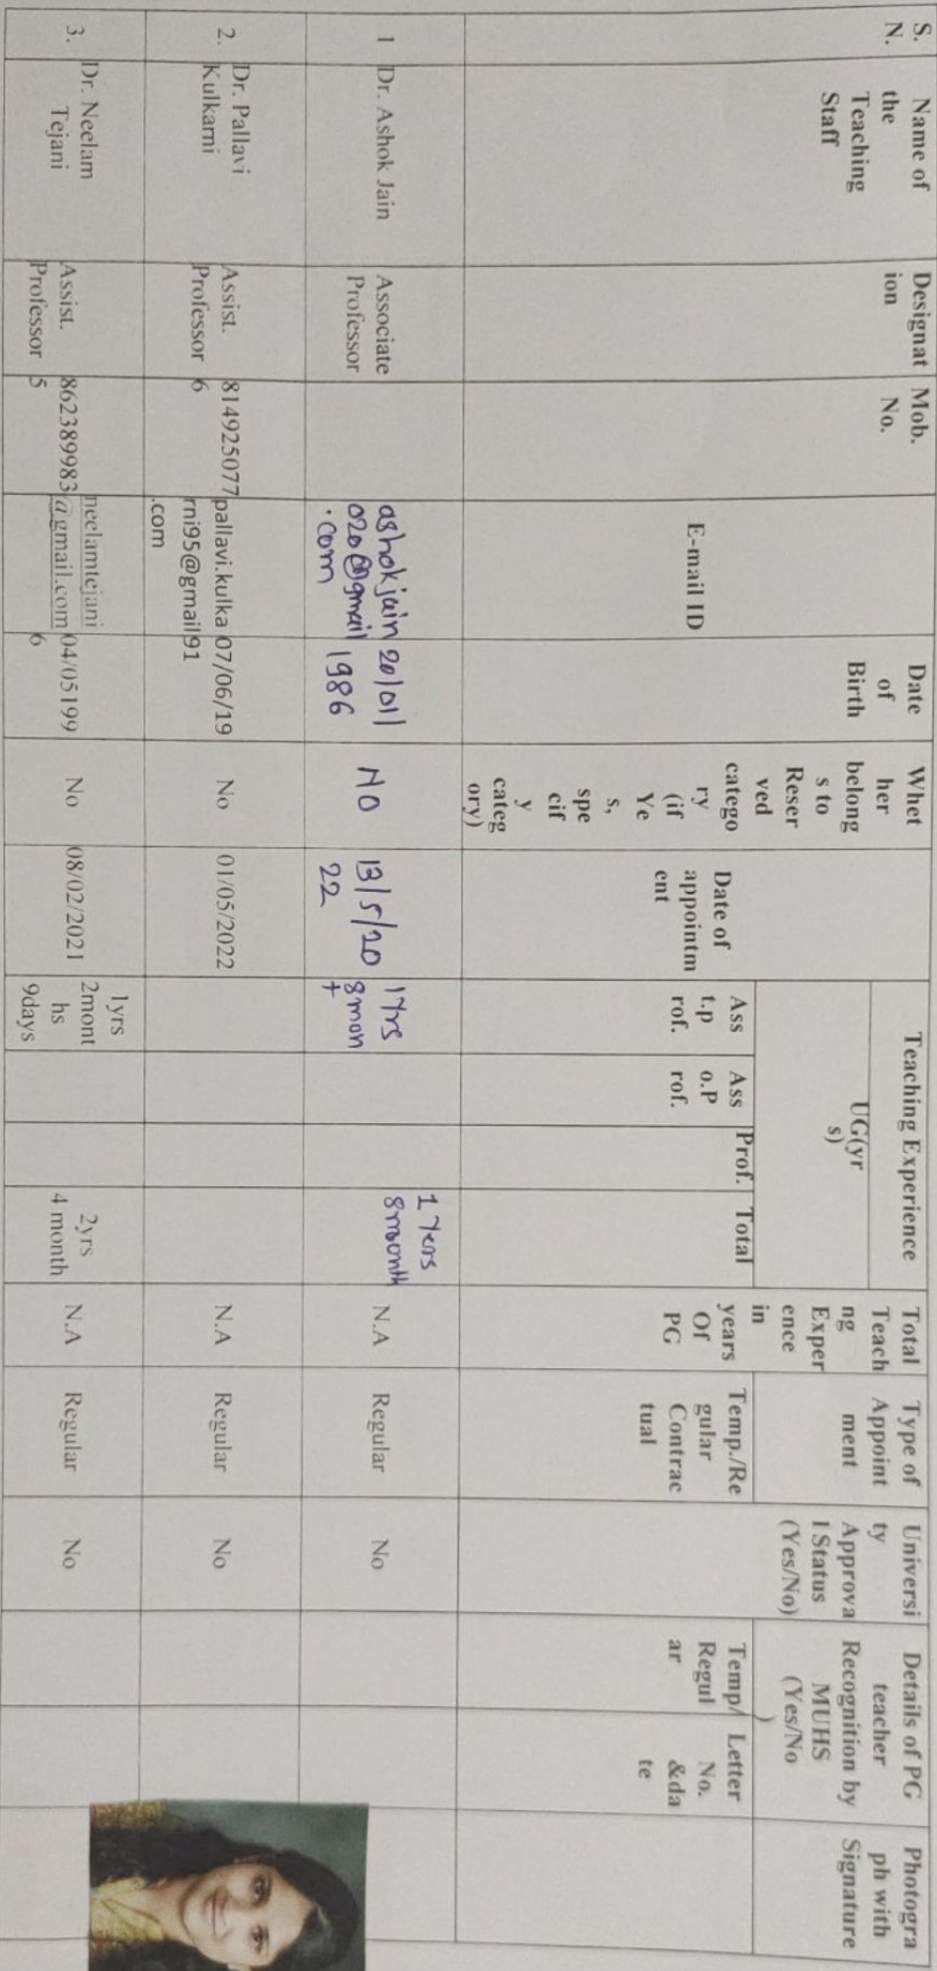 S.
N.
Name of
the
Teaching
Staff
Designat
ion
Mob.
No.
E-mail ID
Date
of
Birth
Whet
her
belong
s to
Reser
ved
catego
ry
(if
Ye
s,
spe
cif
y
categ
ory)
Date of
appointm
ent
Teaching Experience
UG(yr
s)
Ass
t.p
rof.
Ass
o.P
rof.
Prof.
Total
Total
Teach
ng
Exper
ence
in
years
Of
PG
Type of
Appoint
ment
Temp./Re
gular
Contrac
tual
Universi
ty
Approva
l Status
(Yes/No)
Details of PG
teacher
Recognition by
MUHS
(Yes/No
)
Temp/
Regul
ar
Letter
No.
&da
te
Photogra
ph with
Signature
1
Dr. Ashok Jain
Associate
Professor
ashokjain
020@gmail
.com
20/01/
1986
NO
13/5/20
22
1Yrs
8mon
+
1 Yers
8month
N.A
Regular
No
2.
Dr. Pallavi
Kulkarni
Assist.
Professor
81492507​7
6
pallavi.kulka
rni95@gmail
.com
07/06/19
91
No
01/05/2022
N.A
Regular
No
3.
Dr. Neelam
Tejani
Assist.
Professor
862389983
5
neelamtejani
@gmail.com
04/05199
6
No
08/02/2021
1yrs
2mont
hs
9days
2yrs
4 month
N.A
Regular
No